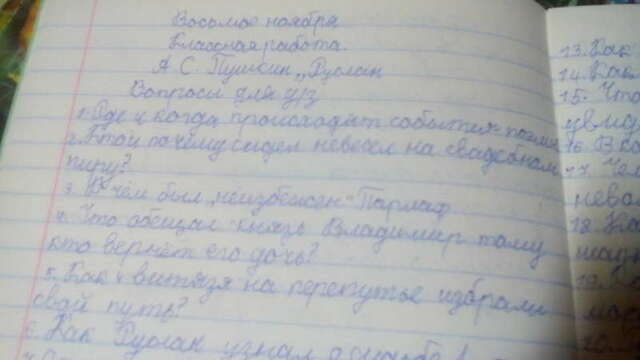 Восьмое ноября
Классная работа.
А.С. Пушкин „Руслан
Вопросы для у/з
1. Где и когда происходят события поэмы
2. Кто и почему сидел невесел на свадебном
пиру?
3. В чём был „неизбежен" Фарлаф
4. Что обещал князь Владимир тому
кто вернёт его дочь?
5. Как 4 витязя на перепутье избрали
свой путь?
6. Как Руслан узнал о
13. Как
14. Как
15. Что
увид
16. В ко
17. Че
нево
18. Ка
19.